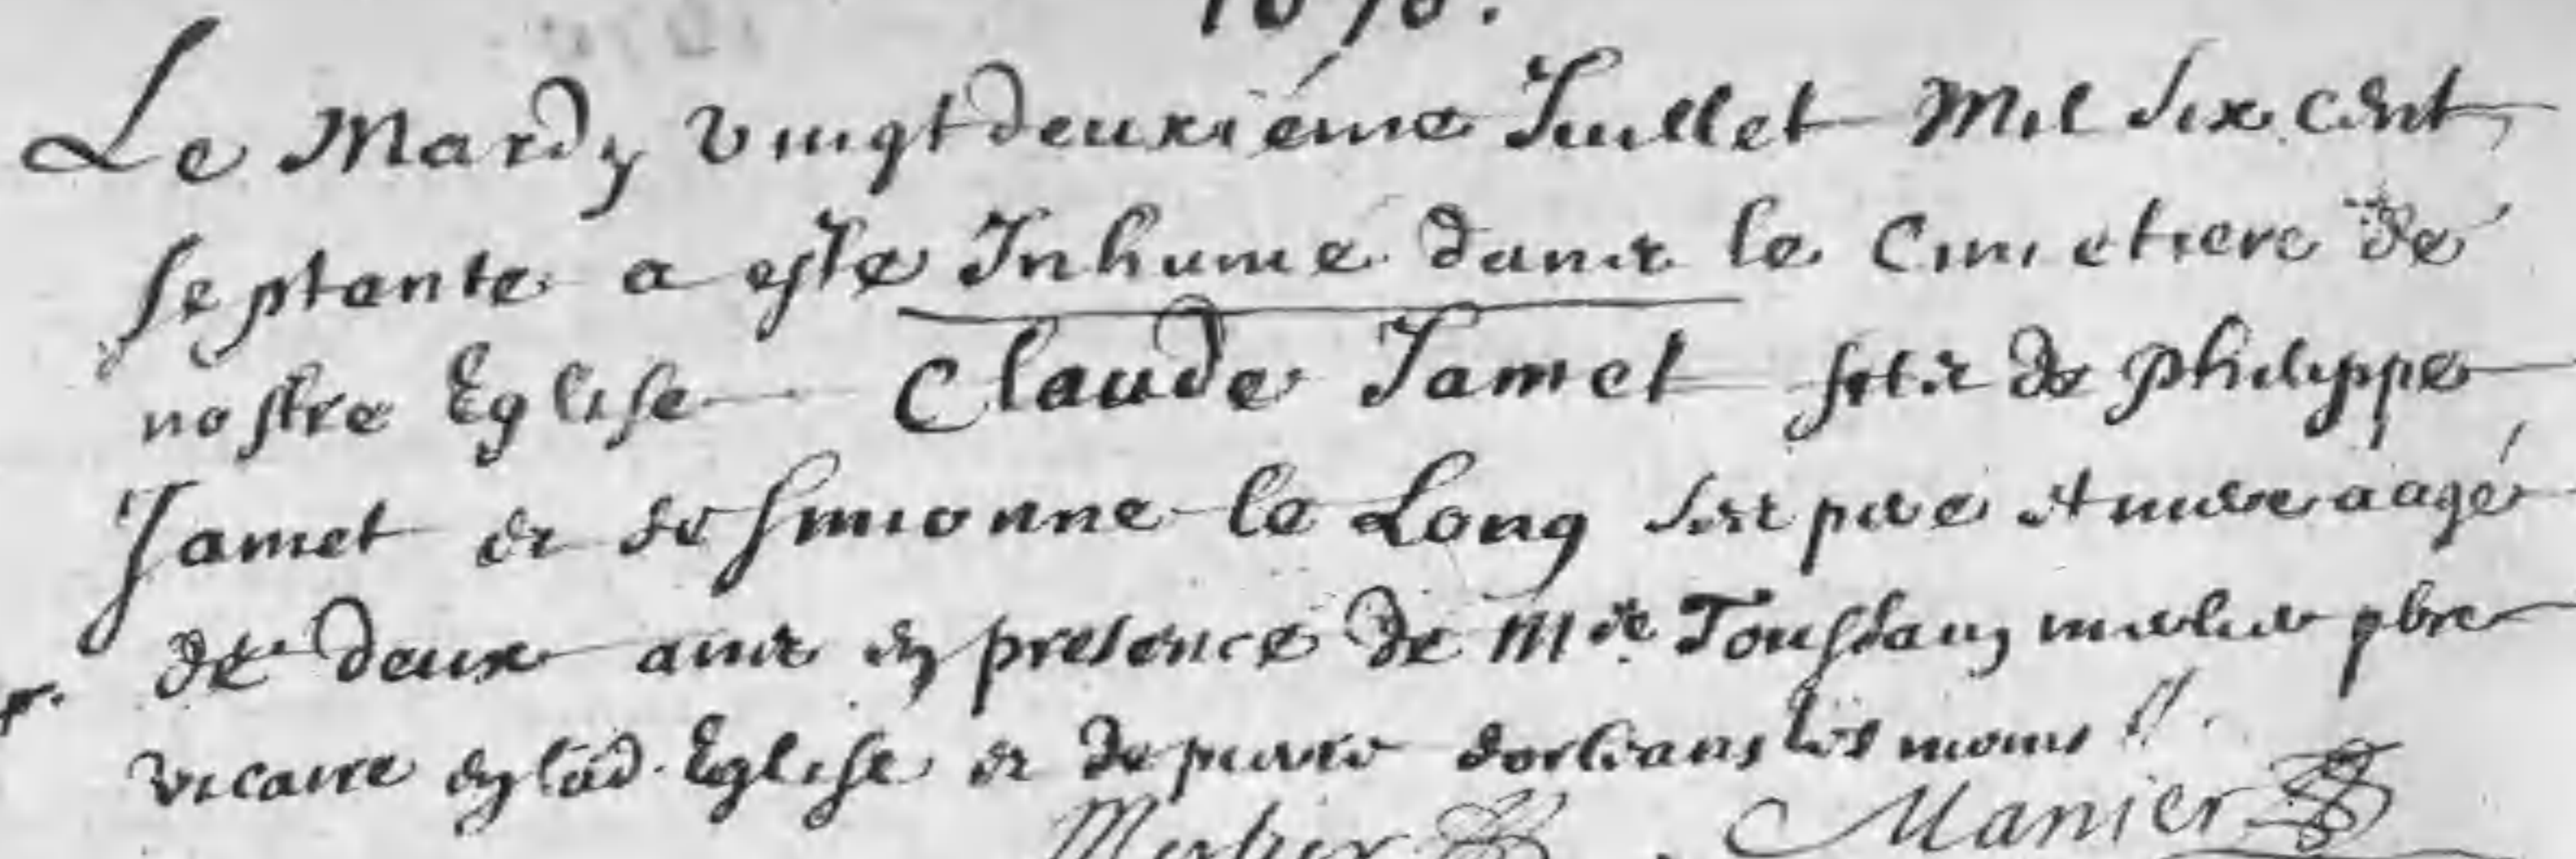 1670.
Le Mardy vingtdeuxiéme Juillet Mil six cent
septante a esté Inhumé dans le Cimetiere de
nostre Eglise Claude Jamet filz de Philippe
Jamet & de Simonne le Long ses pere et mere aagé
de deux ans en presence de Mre Toussang pbre
vicaire en lad. Eglise & de pierre dorleans tesmoins
Manier